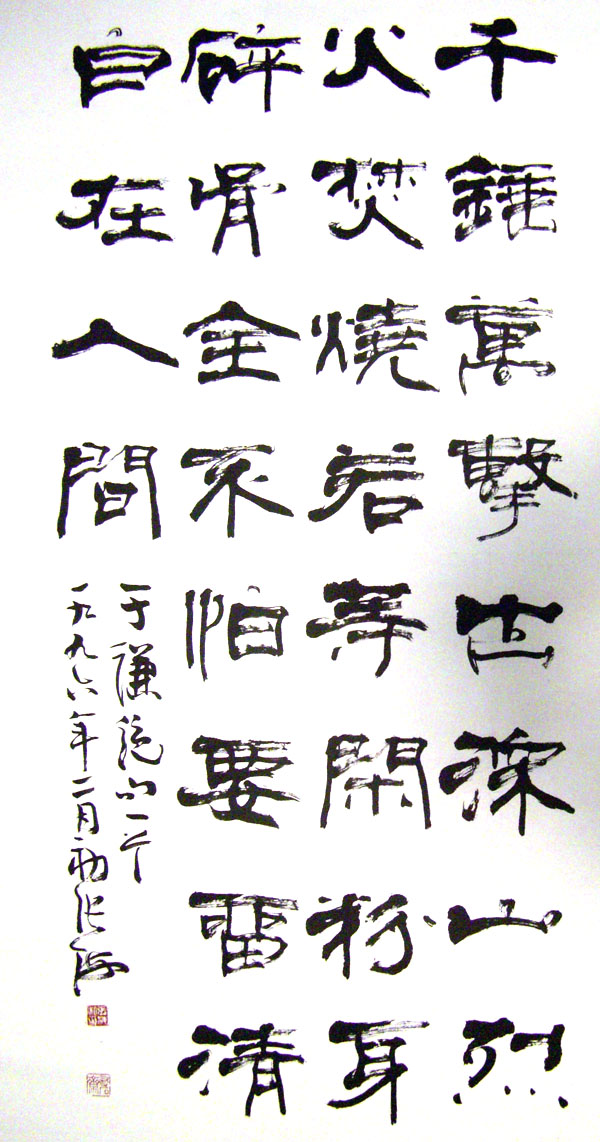 千錘萬擊出深山烈
火焚燒若等閑粉身
碎骨全不怕要留清
白在人間
于謙絕句一首
一九九六年二月初張海